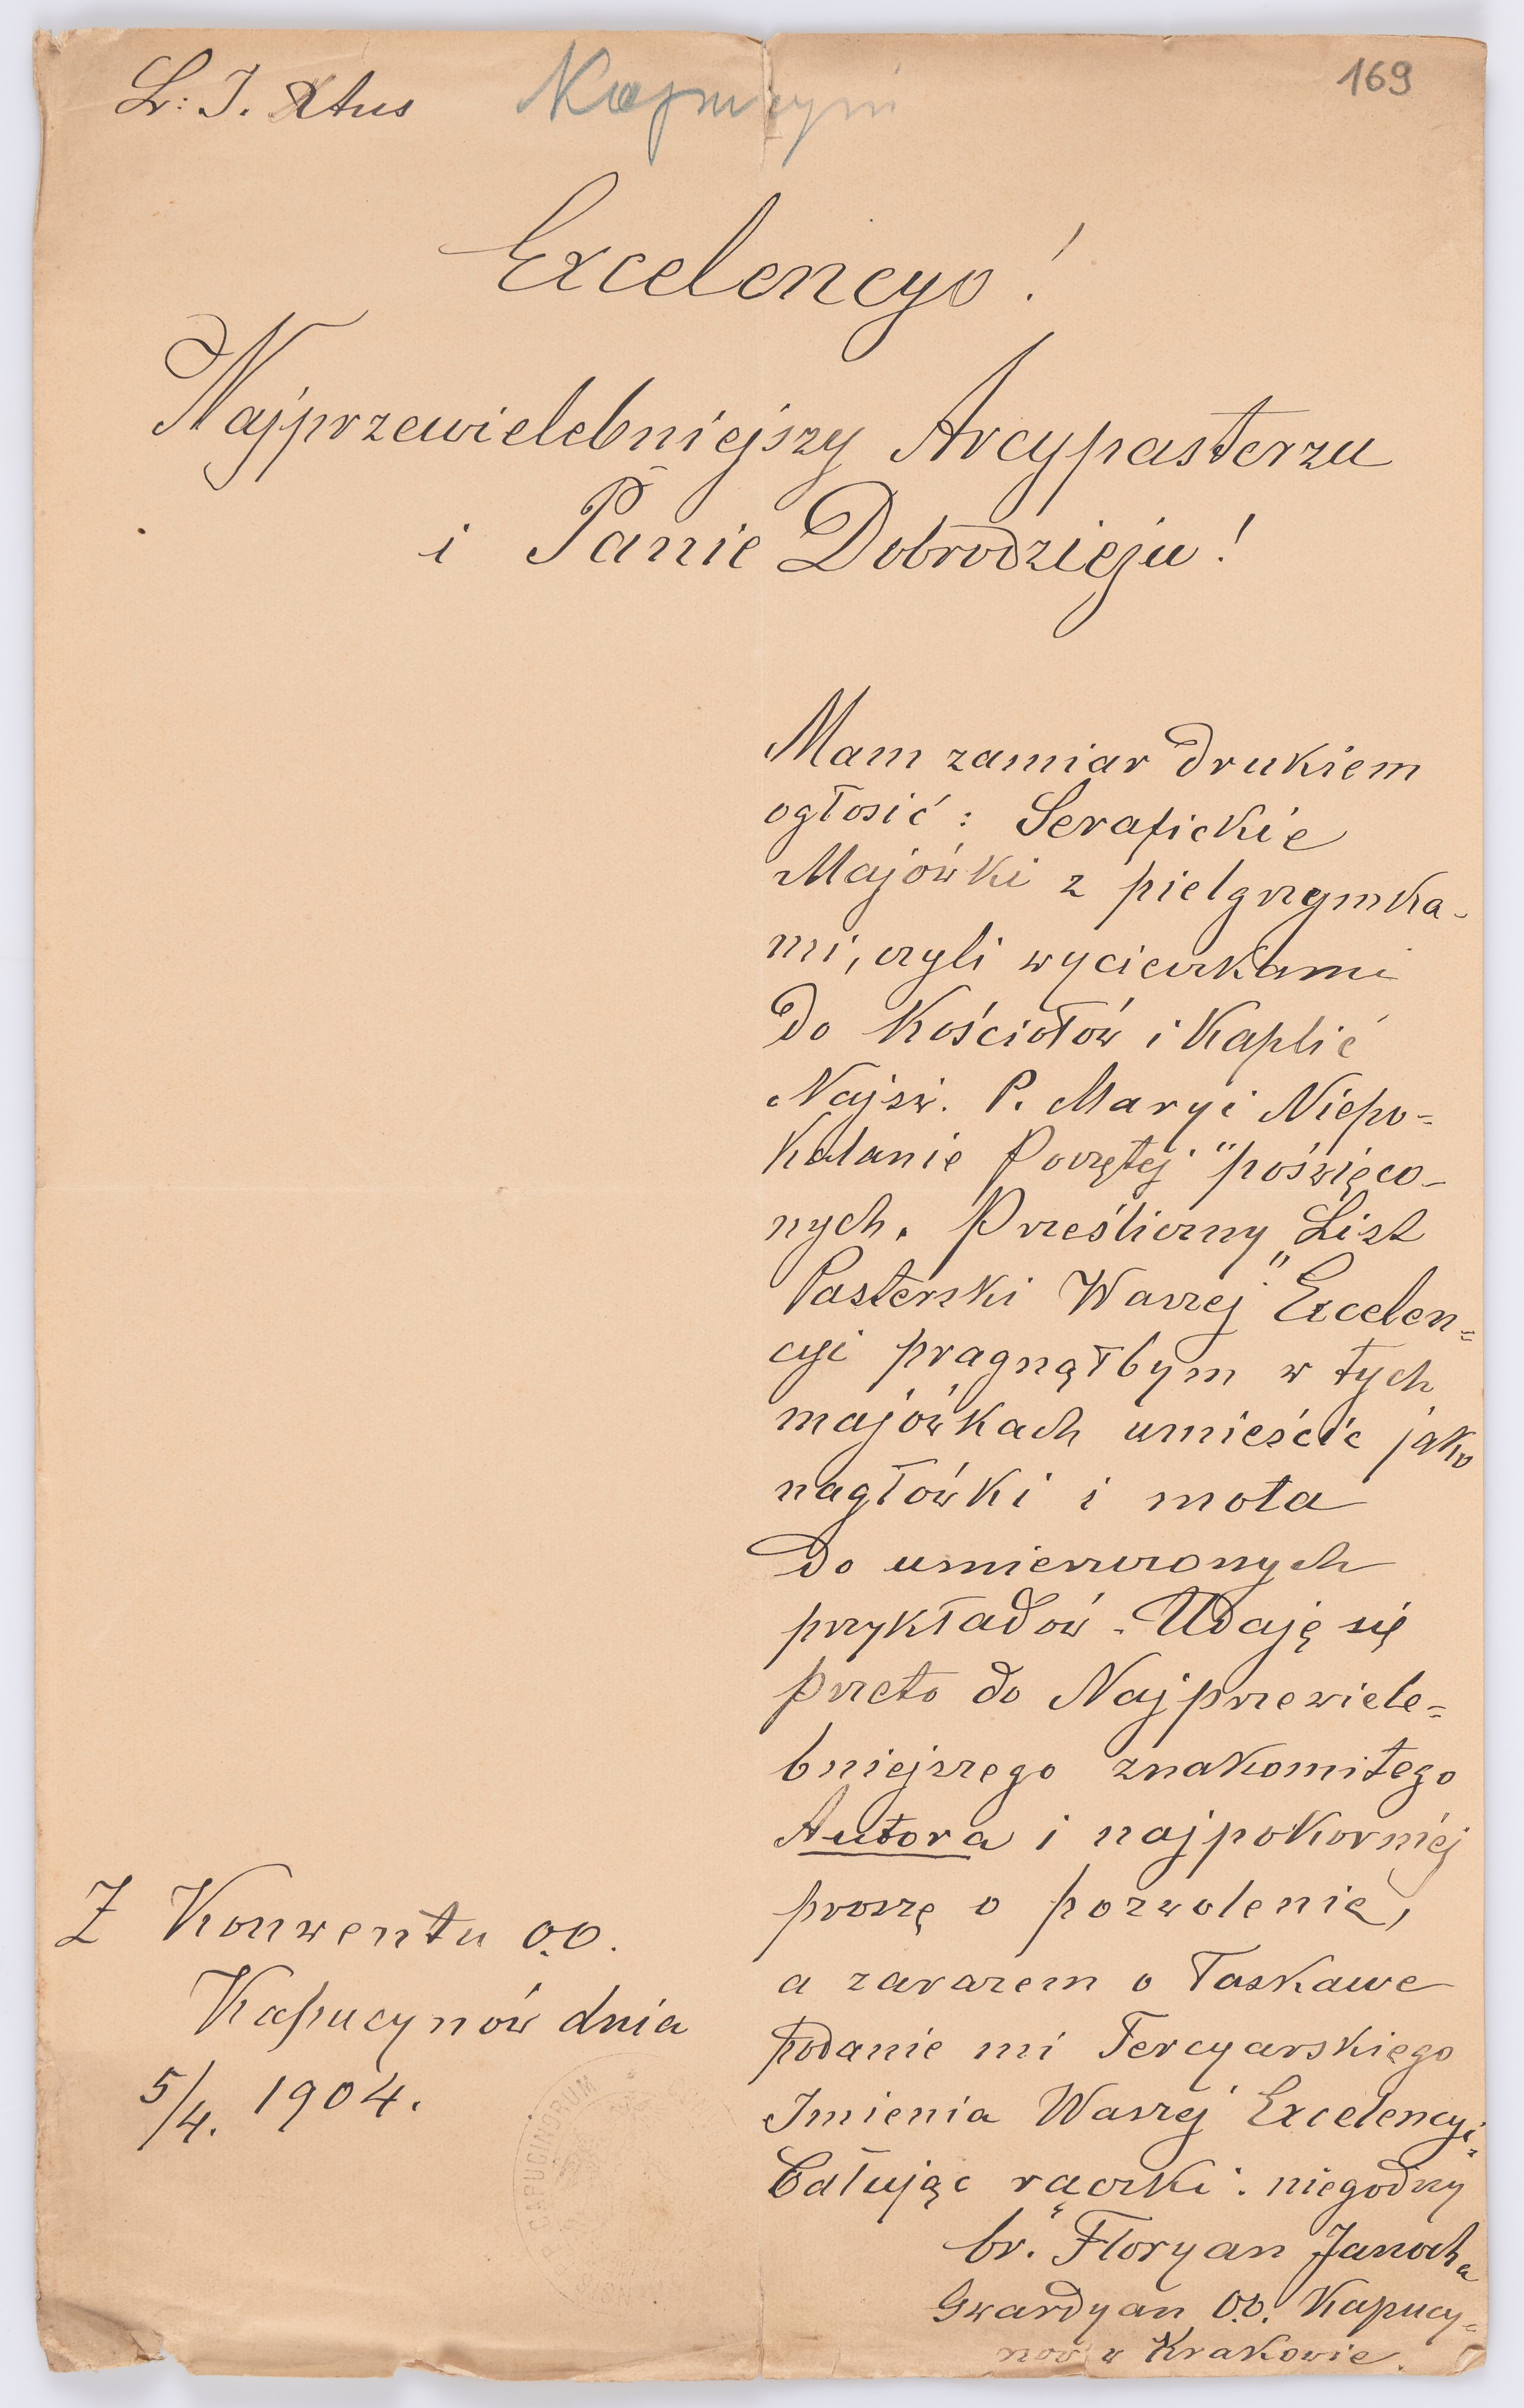 L. J. Xtus
Kapucyni
169
Excelencyo!
Najprzewielebniejszy Arcypasterzu
i Panie Dobrodzieju!
Mam zamiar drukiem
ogłosić: Serafickie
Majówki z pielgrzymka-
mi, czyli wycieczkami
do Kościołów i Kaplić
Najsw. P. Maryi Niepo=
kalanie Poczętej" poświęco-
nych. Prześliczny „List
Pasterski Waszej" Excelen=
cyi pragnąłbym w tych
majówkach umieścić jako
nagłówki i mota
do umieszczonych
przykładów. Udaję się
przeto do Najprzewiele=
bniejszego znakomitego
Autora i najpokorniej
proszę o pozwolenie,
a zarazem o łaskawe
podanie mi Tercyarskiego
Imienia Waszej Excelencyi.
Całując rączki. niegodny
br. Floryan Janocha
Gwardyan O.O. Kapucy=
nów w Krakowie.
Z Konwentu O.O.
Kapucynów dnia
5/4. 1904.
CAPUCINORUM